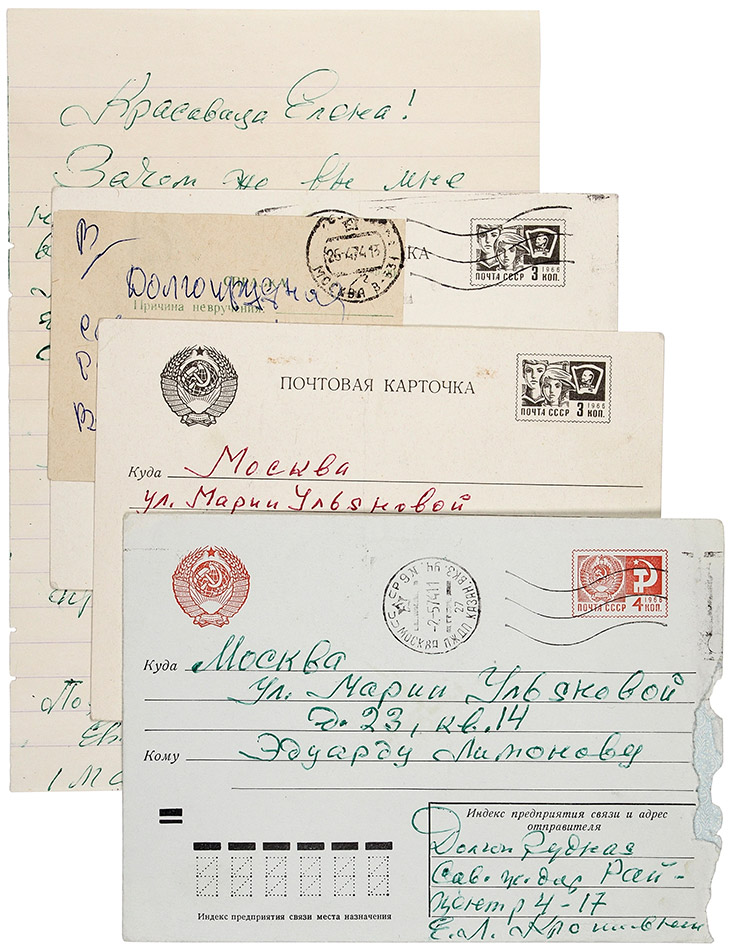 Красавица Елена!
Зачем же вы мне
26-4.74 13
МОСКВА В-331
КА
ПОЧТА СССР
1966
3 КОП.
В/
Долгопрудная
Причина невручения
ПОЧТОВАЯ КАРТОЧКА
ПОЧТА СССР
1966
3 КОП.
Куда Москва
ул. Марии Ульяновой
МОСКВА ПЖДП КАЗАН. ВКЗ. УЧ.
-2.5.74 11
27
ПОЧТА СССР
1966
4 КОП.
Куда Москва
ул. Марии Ульяновой
д. 23, кв. 14
Кому Эдуарду Лимонову
Индекс предприятия связи и адрес
отправителя
Долгопрудная
Сав. ж.дор Рай-
центр 4-17
Е.Л. Кропивниц
Индекс предприятия связи места назначения